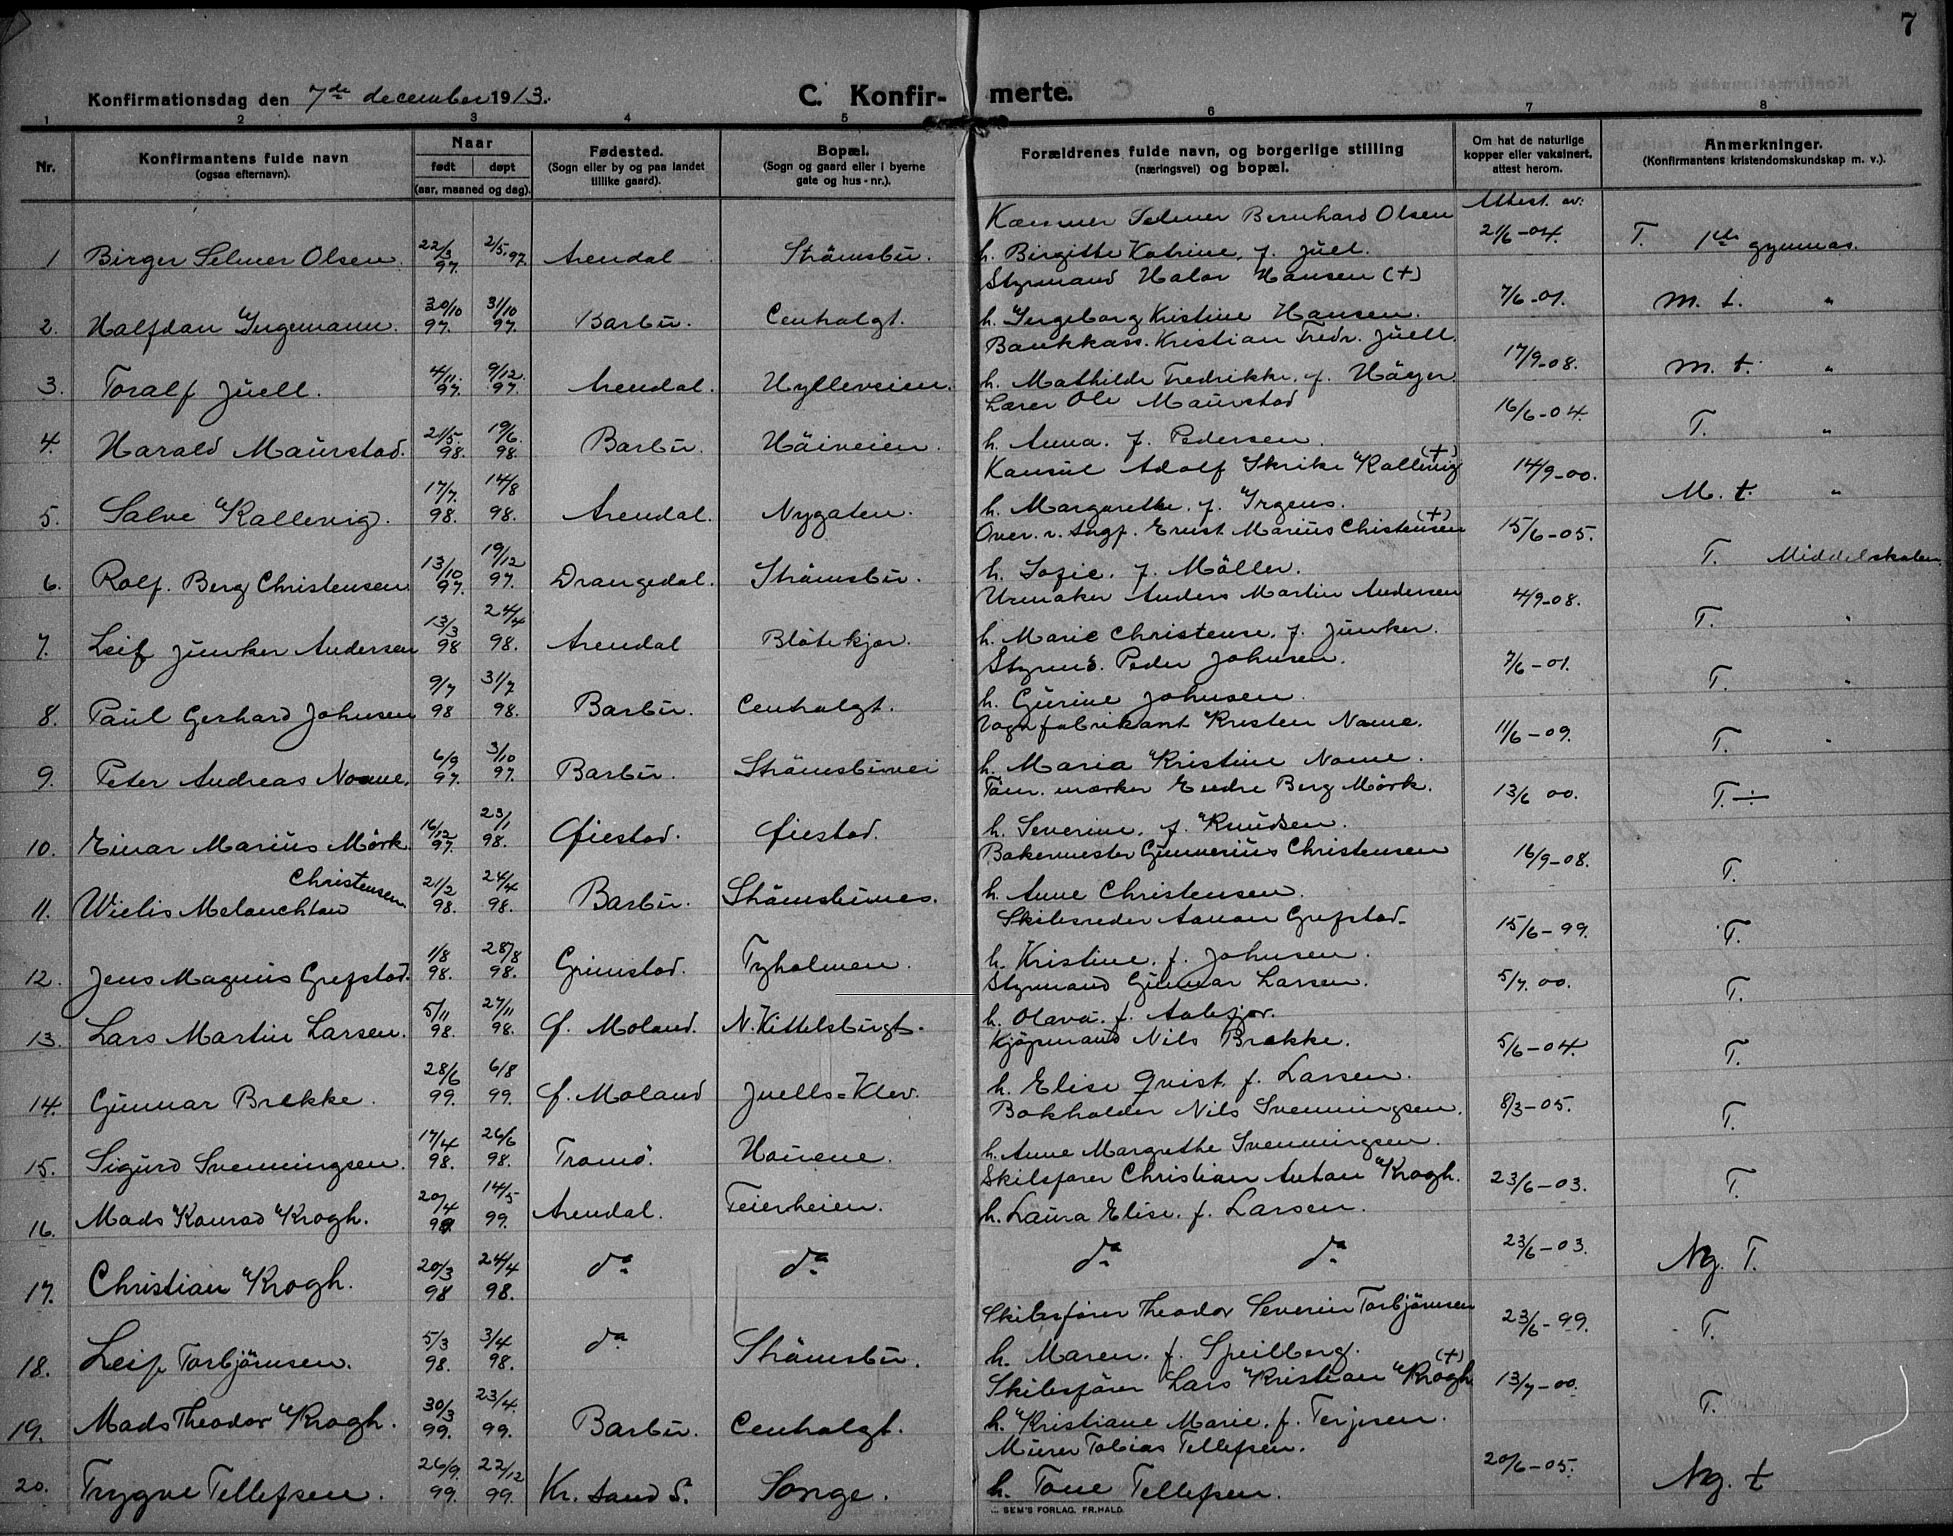 7
Konfirmationsdag den 7de december 1913.
C. Konfir- merte.
1 2 3 4 5 6 7 8
Nr.
Konfirmantens fulde navn
(ogsaa efternavn).
Naar
født døpt
(aar, maaned og dag).
Fødested.
(Sogn eller by og paa landet
tillike gaard).
Bopæl.
(Sogn og gaard eller i byerne
gate og hus-nr.).
Forældrenes fulde navn, og borgerlige stilling
(næringsvei) og bopæl.
Om hat de naturlige
kopper eller vaksinert,
attest herom.
Anmerkninger.
(Konfirmantens kristendomskundskap m. v.).
Attest av:
Kæmner Selmer Bernhard Olsen
1 Birger Selmer Olsen. 22/3 97. 2/5 97. Arendal Strömsbu. h. Birgitte Katrine, f. Juel. 21/6-04. T. 1ste gymnas.
Styrmand Halor Hansen (+)
2. Halfdan Ingemann. 30/10 97. 31/10 97. Barbu. Centralgt. h. Ingeborg Kristine Hansen. 7/6-01. M. t. "
Bankkass. Kristian Fredr. Juell.
3. Toralf Juell. 4/11 97. 9/12 97. Arendal. Hylleveien. h. Mathilde Fredrikke, f. Häyer. 17/9-08. M. t. "
Lærer Ole Maurstad
4. Harald Maurstad. 21/5 98. 19/6 98. Barbu. Häiveien. h. Anna. f. Pedersen. 16/6-04 T. "
Konsul Adolf Skrike Kallevig (+)
5. Salve Kallevig. 17/7 98. 14/8 98. Arendal. Nygaten. h. Margarethe. f. Irgens. 14/9-00. M. t. "
Over. r. Sagf. Ernst Marius Chistensen (+)
6. Rolf. Berg Christensen 13/10 97. 19/12 97. Drangedal. Strömsbu. h. Sofie. f. Möller. 15/6-05. T. Middelskolen.
Urmaker Anders Martin Andersen
7. Leif Junker Andersen 13/3 98 24/4 98. Arendal Blötekjær. h. Marie Christense. f. Junker. 4/9-08. T. "
Styrmd. Peder Johnsen.
8. Paul Gerhard Johnsen 9/7 98 31/7 98. Barbu. Centralgt. h. Gurine Johnsen. 7/6-01. T. "
Vognfabrikant Kristen Nome.
9. Peter Andreas Nome. 6/9 97. 3/10 97. Barbu. Strömsbuvei h. Maria Kristine Nome. 11/6-09. T. "
Töm. mærker Endre Berg Mörk.
10. Einar Marius Mörk 16/12 97. 23/1 98. Øiestad. Øiestad. h. Severine. f. Knudsen. 13/6 00. T. ÷
Bakermester Gunnerius Christensen
11. Wielis Melanchton Christensen. 21/2 98. 24/4 98. Barbu. Strömsbunes. h. Anne Christensen. 16/9-08. T.
Skibsreder Aanon Grefstad.
12. Jens Magnus Grefstad. 1/8 98. 28/8 98. Grimstad. Tyholmen. h. Kristine. f. Johnsen. 15/6-99. T.
Styrmand Gunnar Larsen.
13. Lars Martin Larsen. 5/11 98. 27/11 98. Ø. Moland. N. Kittelsbugt. h. Olava. f. Aabefjor. 5/7. 00. T.
Kjøpmand Nils Brekke.
14. Gunnar Brekke. 28/6 99. 6/8 99. Ø. Moland Juells-Klev. h. Elise Qvist. f. Larsen. 5/6-04. T.
Bokholder Nils Svenningsen.
15. Sigurd Svenningsen. 17/4 98. 26/6 98. Tromö. Hauene. h. Anne Margrethe Svenningsen. 8/3-05. T.
Skibsfører Christian Anton Krogh.
16. Mads Konrad Krogh. 20/4 99. 14/5 99. Arendal. Feierheien. h. Laura Elise. f. Larsen. 23/6-03. T.
17. Christian Krogh. 20/3 98 24/4 98. do do do do 23/6-03. Ng. T.
Skibsfører Theodor Severin Torbjörnsen
18. Leif Torbjörnsen. 5/3 98. 3/4 98. do Strömsbu. h. Maren. f. Speilberg. 23/6-99. T.
Skibsfører Lars Kristian Krogh (+)
19. Mads Theodor Krogh. 30/3 99. 23/4 99. Barbu. Centralgt. h. Kristiane Marie. f. Terjesen. 13/7-00. T.
Murer Tobias Tellefsen.
20. Trygve Tellefsen. 26/9. 99. 22/12 99. Kr. Sand S. Songe. h. Tone Tellefsen. 20/6-05. Ng. t
SEM'S FORLAG. FR.HALD.